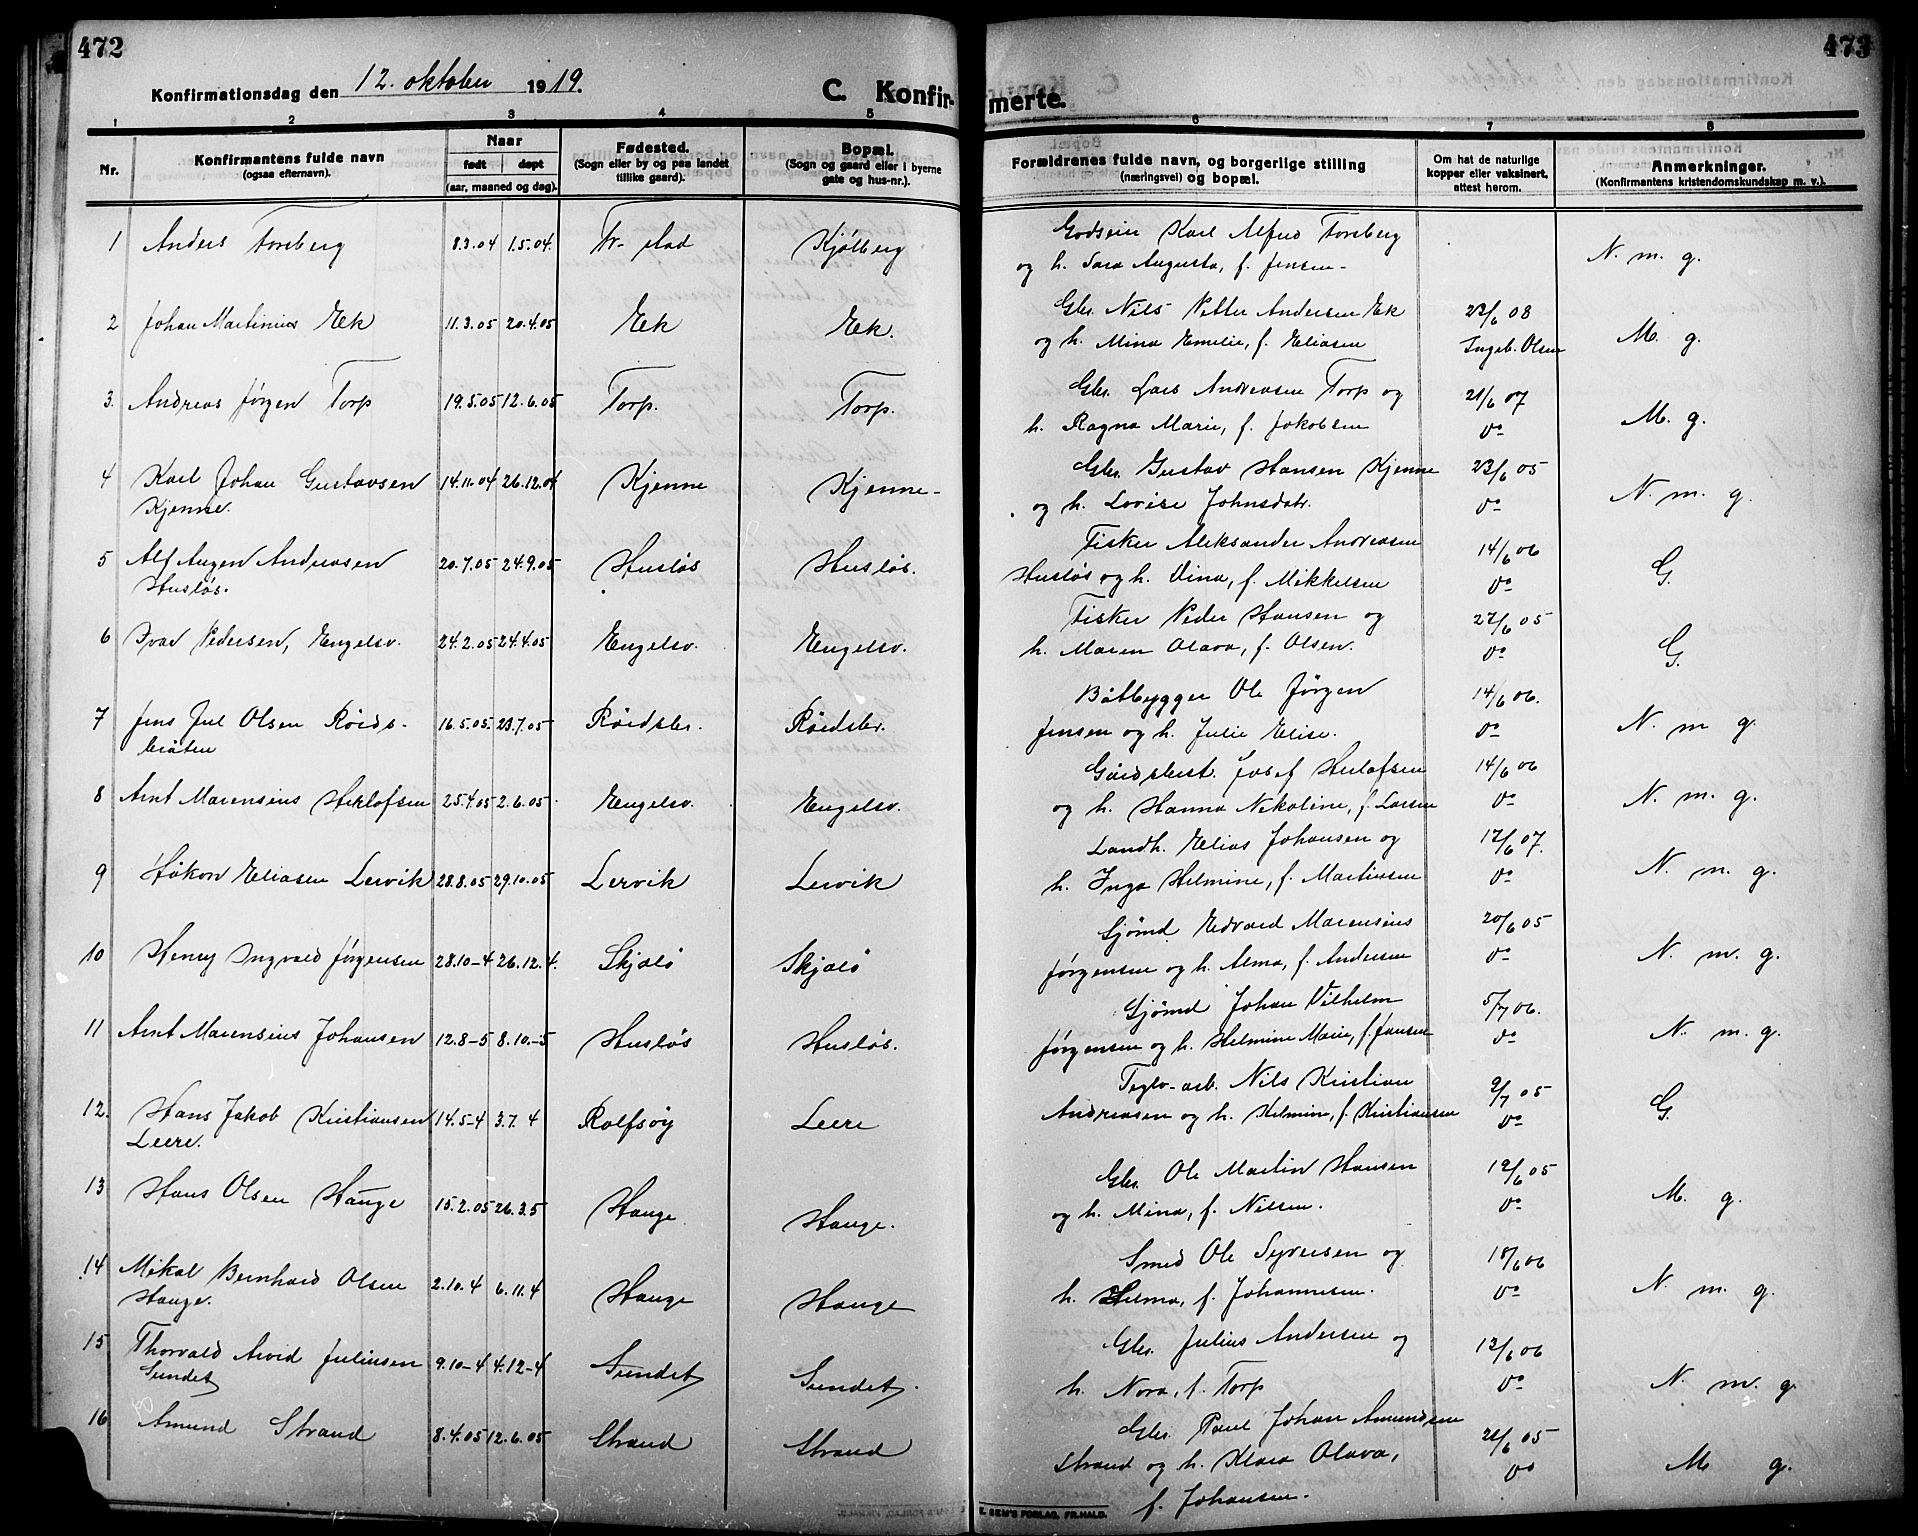 472
473
Konfirmationsdag den 12. oktober 1919.
C. Konfirmerte.
1 2 3 4 5 6 7 8
Nr.
Konfirmantens fulde navn
(ogsaa efternavn).
Naar
født døpt
(aar, maaned og dag).
Fødested.
(Sogn eller by og paa landet
tillike gaard).
Bopæl.
(Sogn og gaard eller i byerne
gate og hus-nr.).
Forældrenes fulde navn, og borgerlige stilling
(næringsvei) og bopæl.
Om hat de naturlige
kopper eller vaksinert,
attest herom.
Anmerkninger.
(Konfirmantens kristendomskundskap m. v.).
1 Anders Forsberg 8.3.04 1.5.04. Fr-stad Kjølberg
Godseier Karl Alfred Forsberg
og h. Sara Augusta, f. Jensen- N. m. g.
2 Johan Martinius Eek 11.3.05 20.4.05 Eek Eek.
Gbr. Nils Petter Andersen Ek 23/6 08
og h. Mina Emelie, f. Eliasen Ingeb. Olsen M. g.
3. Andreas Jørgen Torp 19.5.05 12.6.05 Torp. Torp.
Gbr. Lars Andreasen Torp og 21/6 07
h. Ragna Marie, f. Jakobsen do M. g.
4 Karl Johan Gustavsen 14.11.04 26.12.04 Kjenne Kjenne-
Kjenne.
Gbr. Gustav Hansen Kjenne 23/6 05
og h. Lovise Johnsdatr. do N. m. g.
5 Alf Augen Andreasen 20.7.05 24.9.05 Husløs Husløs.
Husløs.
Fisker Aleksander Andreasen 14/6 06
Husløs og h. Vina, f. Mikkelsen do G.
6 Ivar Pedersen, Engelsv. 24.2.05 24.4.05 Engelsv. Engelsv.
Fisker Peder Hansen og 27/6 05
h. Maren Olava, f. Olsen. do G.
7 Jens Jul Olsen Røids- 16.5.05. 23.7.05 Røidsbr. Røidsbr.
bråten
Båtbygger Ole Jørgen 14/6 06.
Jensen og h. Julie Elise. do N. m g.
8 Arnt Marensius Herlofsen 25.4.05 2.6.05. Engelsv. Engelsv.
Gårdsbest. Josef Herlofsen 14/6 06
og h. Hanna Nikoline, f. Larsen do N. m. g.
9 Håkon Eliasen Lervik 28.8.05 29.10.05 Lervik Lervik
Landh. Elias Johansen og 12/6 07.
h. Inga Helmine, f. Martinsen do N. m. g.
10 Henry Ingvald Jørgensen 28.10-4 26.12.4. Skjælø Skjælø
Sjømd Edvard Marensius 20/6 05
Jørgensen og h. Alma, f. Andersen do N. m. g.
11 Arnt Marensius Johansen 12.8-5 8.10.-5 Husløs Husløs.
Sjømd Johan Vilhelm 5/7 06.
Jørgensen og h. Helmine Marie, f. Jansen do N. m. g.
12. Hans Jakob Kristiansen 14.5-4 3.7. 4 Rolfsøy Leere
Leere.
Teglv-arb. Nils Kristian 9/7 05
Andreasen og h. Helmine, f. Kristiansen do G.
13 Hans Olsen Hauge 15.2.05 26.3.5 Hauge Hauge.
Gbr. Ole Martin Hansen 19/6 05
og h. Mina, f. Nilsen. do M. g.
14 Mikal Bernhard Olsen 2.10.4 6.11.4 Hauge Hauge
Hauge.
Smed Ole Syversen og 18/6 06
h. Helma, f. Johannesen. do N m. g.
15 Thorvald Arvid Juliusen 9.10-4 4.12-4 Sundet Sundet.
Sundet
Gbr. Julius Andersen og 13/6 06
h. Nora, f. Torp do N. m. g.
16 Amund Strand 8.4.05 12.6.05 Strand Strand
Gbr. Paul Johan Amundsen
Strand og h. Klara Olava, 21/6 05
f. Johansen. do M g.
E. SEM'S FORLAG, FR.HALD.